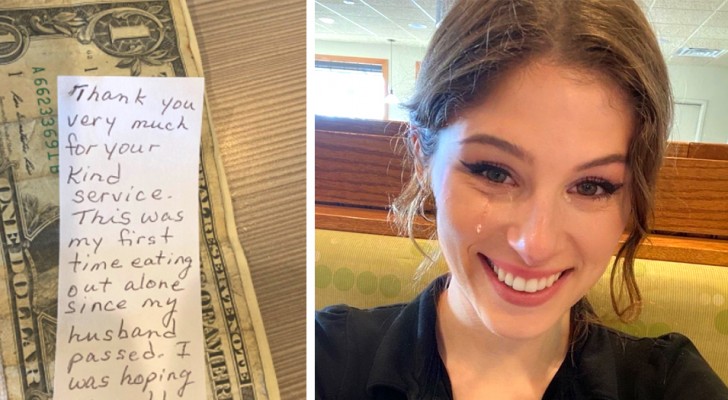 Thank you
very much
for your
kind
service.
This was
my first
time eating
out alone
since my
husband
passed. I
was hoping
1
A66233691B
ONE DOLLAR